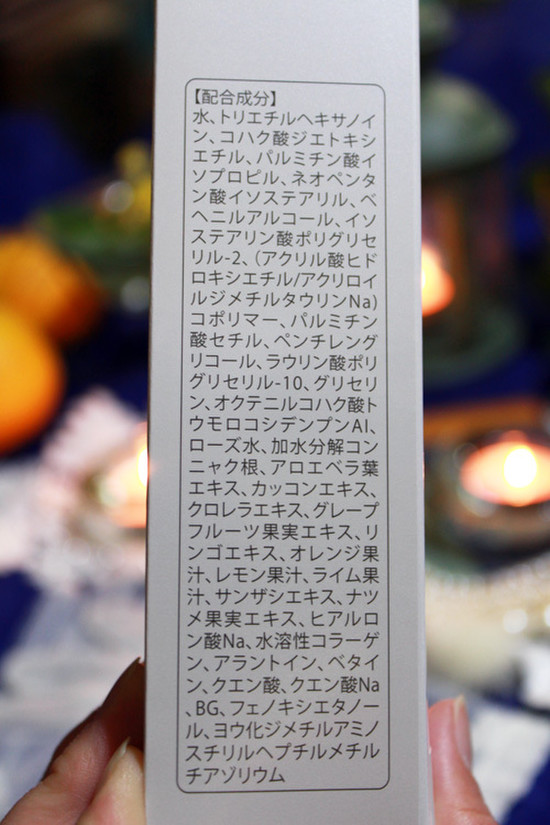 【配合成分】
水、トリエチルヘキサノイ
ン、コハク酸ジエトキシ
エチル、パルミチン酸イ
ソプロピル、ネオペンタ
ン酸イソステアリル、ベ
ヘニルアルコール、イソ
ステアリン酸ポリグリセ
リル-2、(アクリル酸ヒド
ロキシエチル/アクリロイ
ルジメチルタウリンNa)
コポリマー、パルミチン
酸セチル、ペンチレング
リコール、ラウリン酸ポリ
グリセリル-10、グリセリ
ン、オクテニルコハク酸ト
ウモロコシデンプンAl、
ローズ水、加水分解コン
ニャク根、アロエベラ葉
エキス、カッコンエキス、
クロレラエキス、グレープ
フルーツ果実エキス、リ
ンゴエキス、オレンジ果
汁、レモン果汁、ライム果
汁、サンザシエキス、ナツ
メ果実エキス、ヒアルロ
ン酸Na、水溶性コラーゲ
ン、アラントイン、ベタイ
ン、クエン酸、クエン酸Na
、BG、フェノキシエタノー
ル、ヨウ化ジメチルアミノ
スチリルヘプチルメチル
チアゾリウム